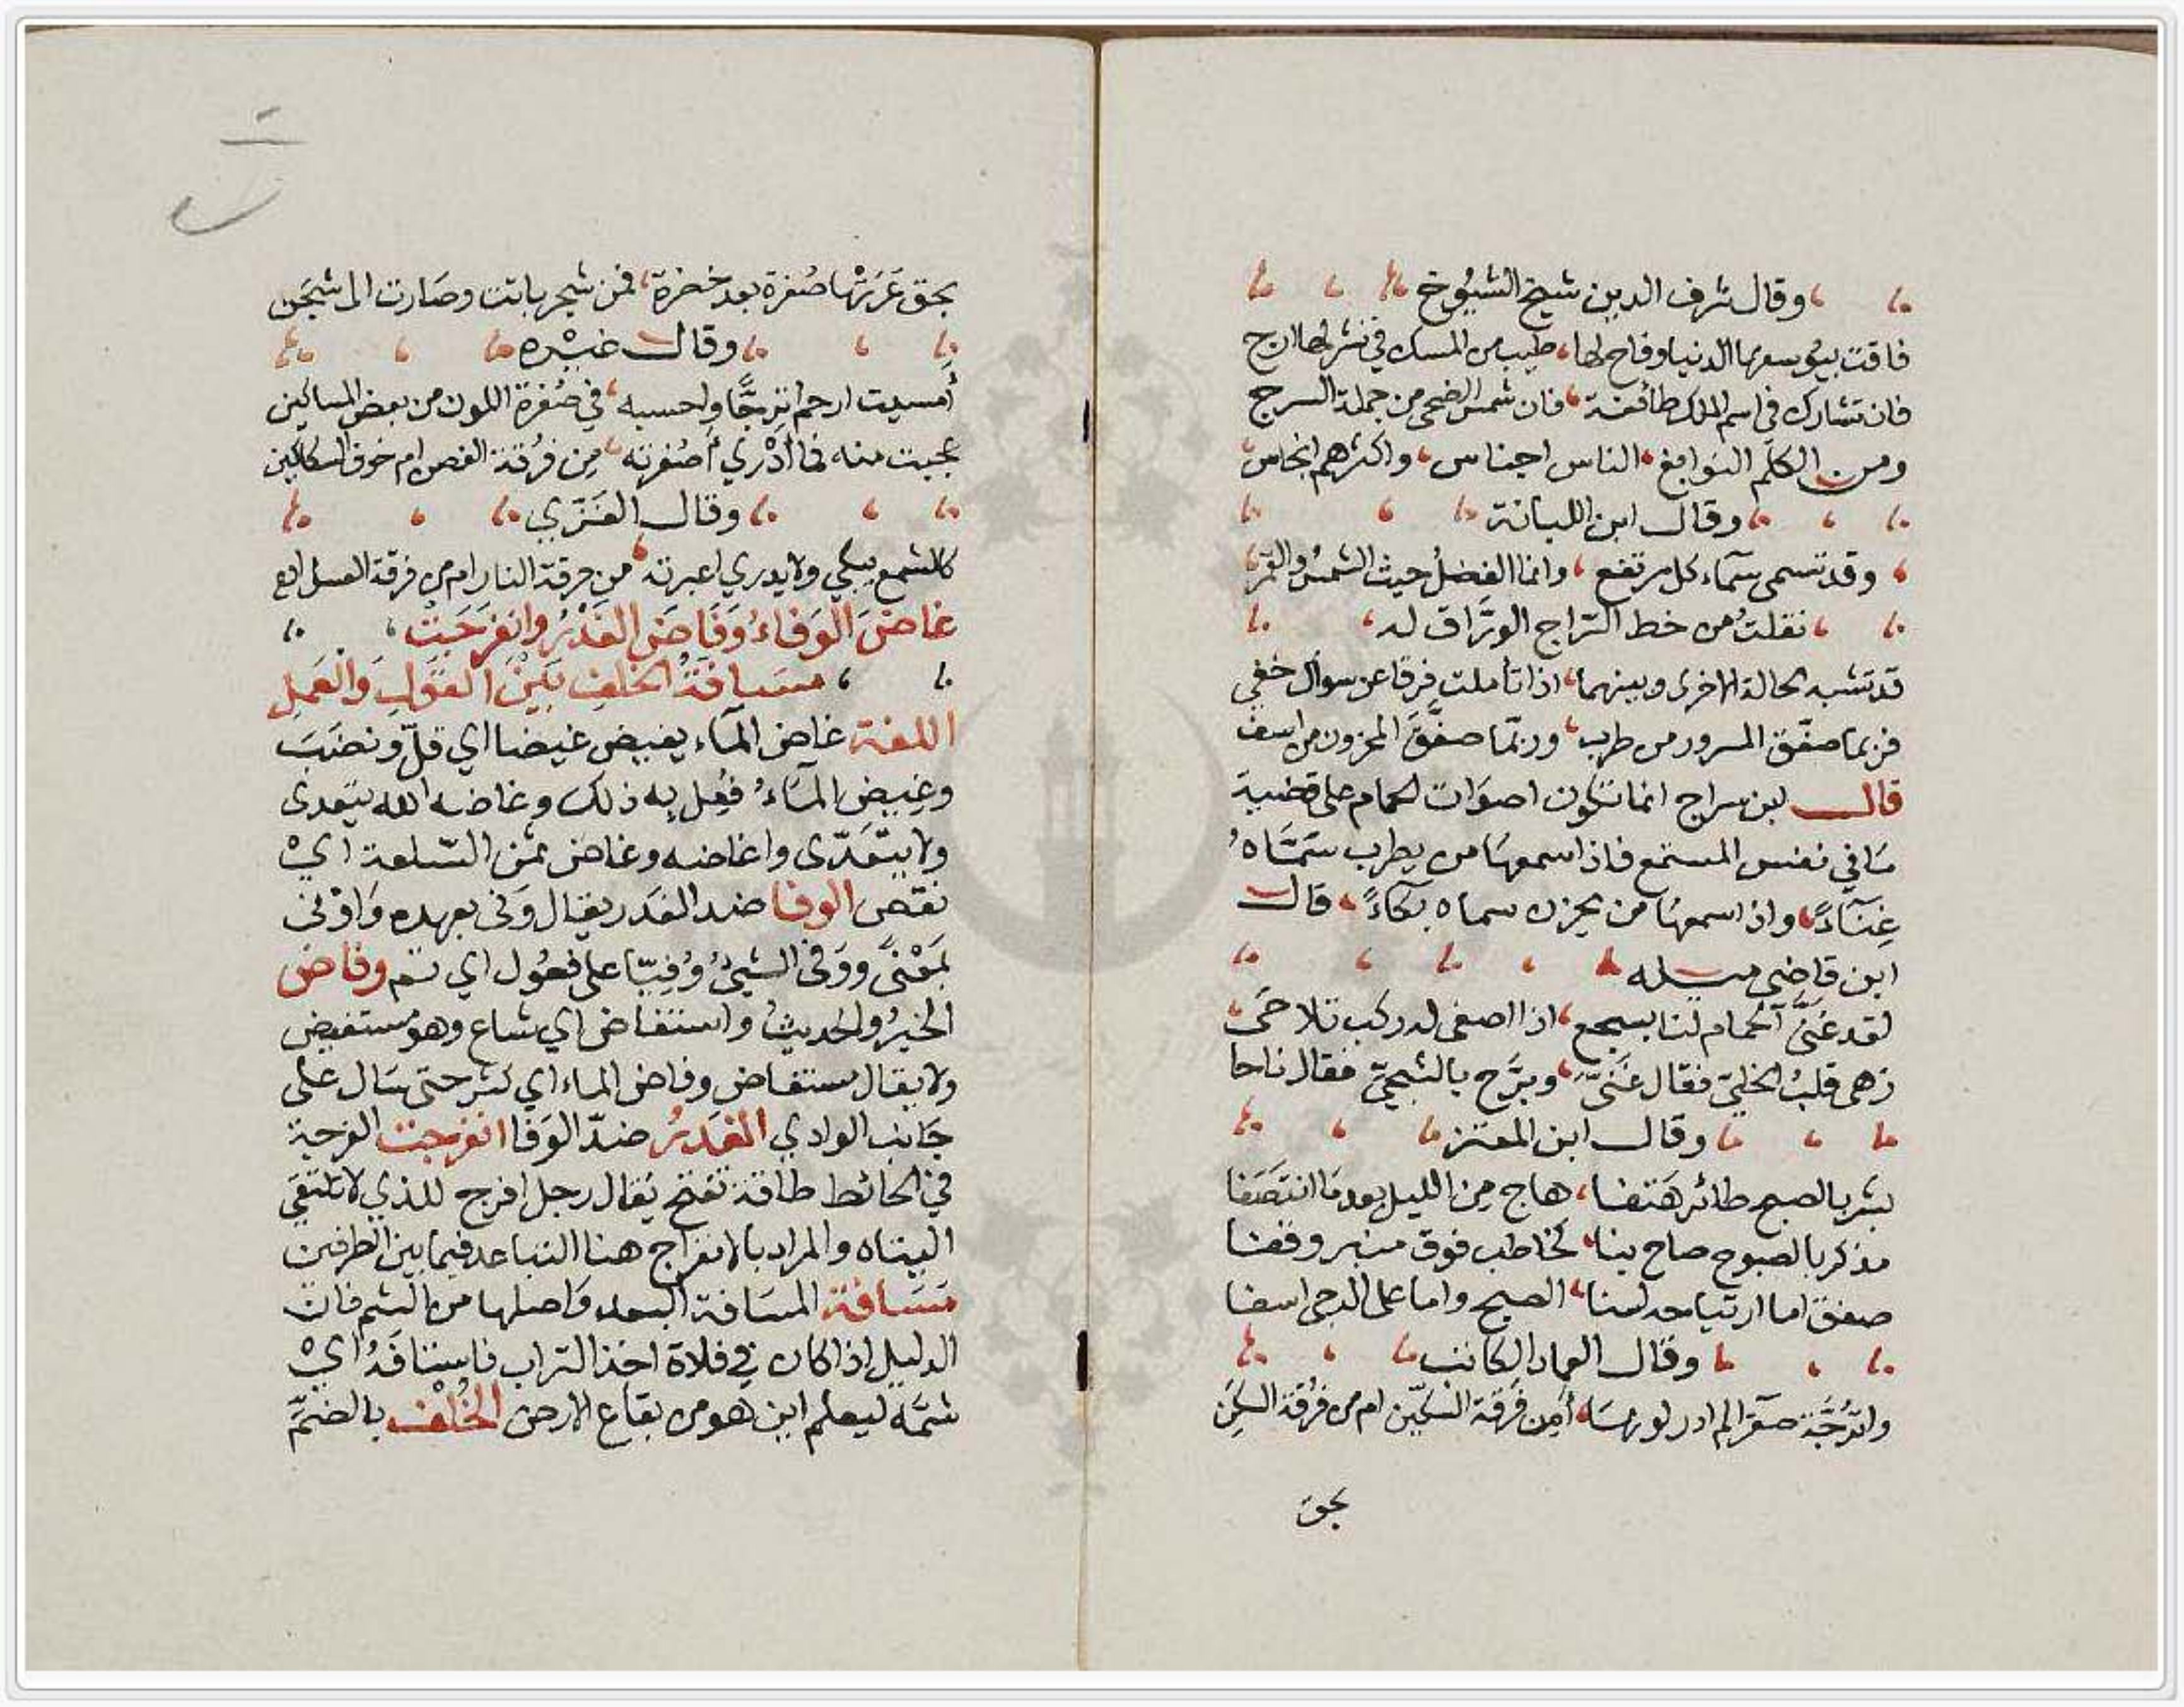 وقال شرف الدين شيخ الشيوخ
فاقت بيوسعها الدنيا وفاح لها، طيب من المسك في نشر لها ارج
فان تشارك في اسم الملك طائفة، فان شمس الضحى من جملة السرج
ومن الكلم النوابغ، الناس اجناس، واكثرهم انجاس،
وقال ابن اللبانة
وقد تسمى سماء كل مرتفع، وانما الفضل حيث الشمس والقمر
نقلت من خط السراج الوراق له،
قد تشبه الحالة الاخرى وبينهما، اذا تأملت فرقا عن سوال خفي
فربما صفّق المسرور من طرب، وربّما صفّق المحزون من اسف
قال ابن سراج انما تكون اصوات الحمام على قضية
مَا في نفس المستمع فاذا سمعها من يطرب سمَّاهُ
غِنَاءً، واذا سمعها من يحزن سماه بكاءً، قال
ابن قاضي ميله
لقد غَنَّى الحمام لنا بسجع، اذا اصغى له ركب تلاحَى،
زهى قلبُ الخليّ فقال غَنّى، وبرَّح بالشجيّ فقال ناحا
وقال ابن المعتز
بشر بالصبح طائر هَتفا، هاج مِن الليل بعد مَا انتصَفا
مذكر بالصبوح صاح بنا، كخاطب فوق منبر وقفا
صفق اما ارتياحه لسنا، الصبح واما على الدجى اسفا
وقال العماد الكاتب
واترُجَّة صفراء لم ادر لونهَا، أمِن فَرقة السكّين ام من فُرقة السكَنِ
بحق
بحق عَرَتْهَا صُفرة بعد خضرة، فمن شجر بانت وصَارت الى شجَن
وقال غيْره
أمسيت ارحم اترجًّا واحسبه، في صُفرة اللون من بعض المساكين
عجبت منه فما أدْري أصُفرته، مِن فُرقة الغصن ام خوف السكاكين
وقال الغَزّي
كالشمع يبكي ولا يدري اعبرته، من حرقة النار ام من فرقة العسل اهـ
غَاضَ الوَفاءُ وَفَاضَ الغَدْرُ وانفرَجَتْ،
مسَافَةُ الخلفِ بَيْنَ القَولِ وَالعَمَلِ
اللغة غاض المآء يغيض غيضا اي قلّ ونضَبَ
وغيض المآءُ فُعِل به ذلك وغاضه الله يتعدى
ولا يتعَدّى واغاضه وغاض ثمَن السّلعة ايْ
نقص الوفا ضد الغدر يقال وَفى بعهده وَاوْفى
بمَعْنًى ووَفى الشيئُ وُفيّا على فعُول اي تم وفاض
الخبرُ والحديثُ واستفاض اي شاع وهو مستفيض
ولا يقال مستفاض وفاض الماء اي كثر حتى سَال على
جَانب الوادي الغَدرُ ضدّ الوَفا انفرجت الفرجة
في الحائط طاقة تفتح يُقال رجل افرج للذي لا تلتقي
اليتاه والمراد بالانفراج هنا التباعد فيما بين الطرفين
مَسَافة المسَافة البعد وَاصلها من الشم فان
الدليل اذا كان في فلاة اخذ التراب فاستافَهُ ايْ
شمَّهُ ليعلم اين هو من بقاع الارض الخُلْف بالضمّ